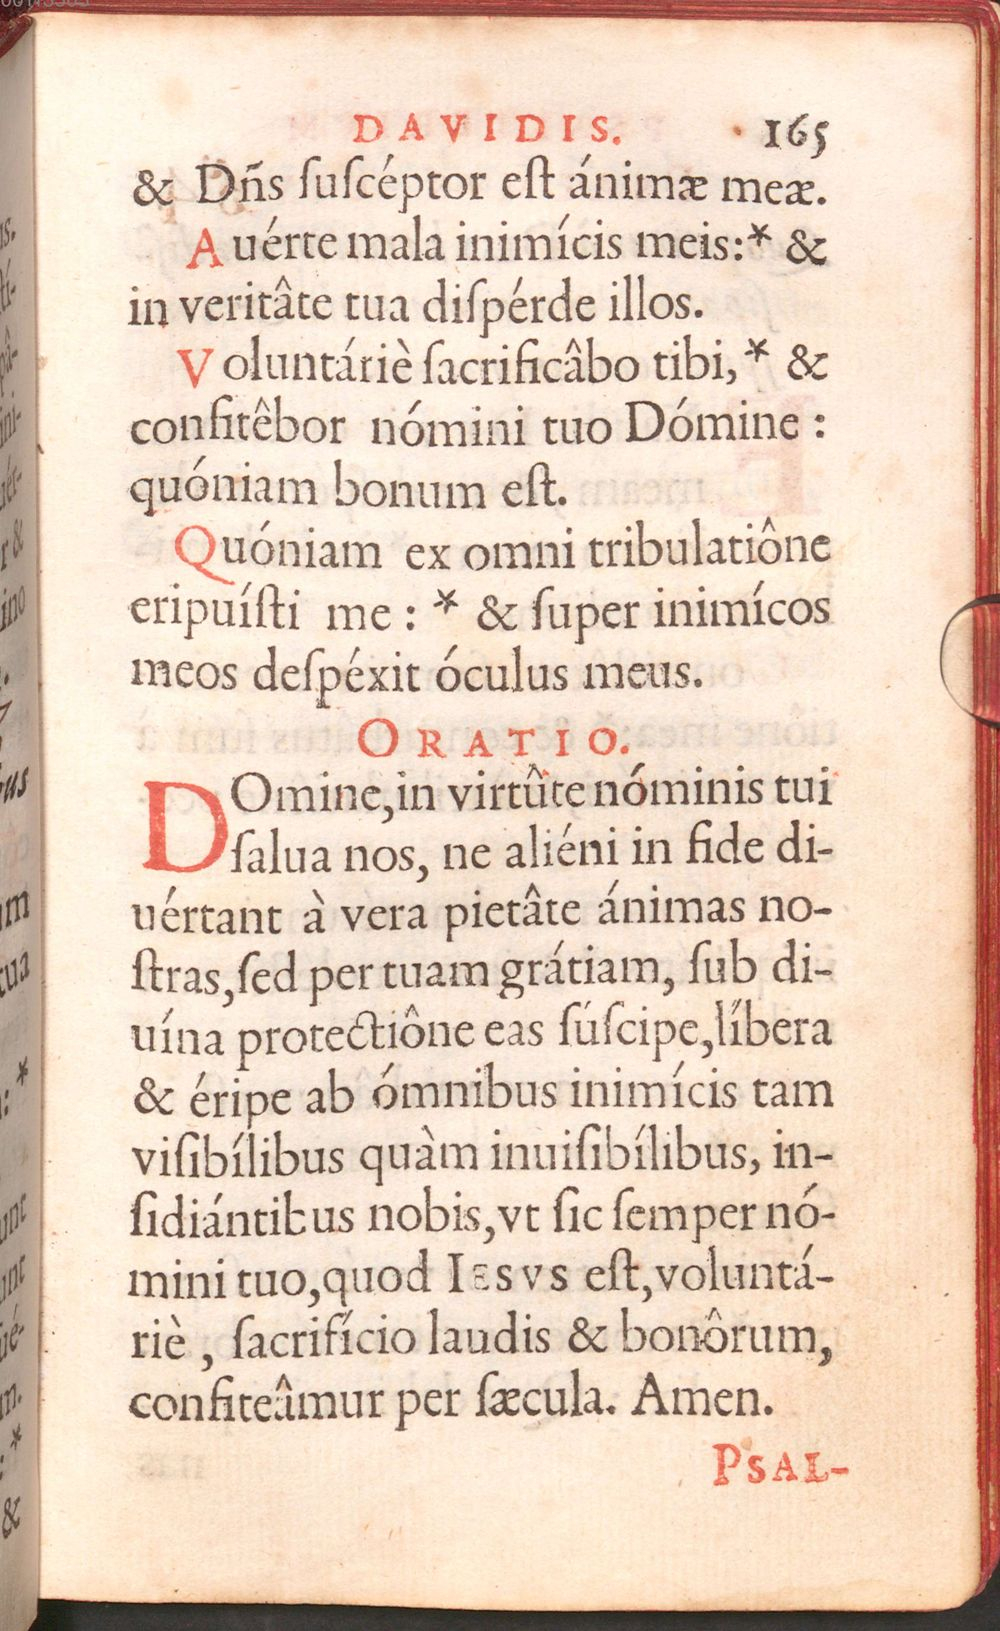 DAVIDIS. 165
& Dñs ſuſcéptor eſt ánimæ meæ.
Auérte mala inimícis meis:* &
in veritâte tua diſpérde illos.
Voluntáriè ſacrificâbo tibi,* &
confitêbor nómini tuo Dómine :
quóniam bonum eſt.
Quóniam ex omni tribulatiône
eripuíſti me : * & ſuper inimícos
meos deſpéxit óculus meus.
ORATIO.
DOmine,in virtûte nóminis tui
ſalua nos, ne aliéni in fide di-
uértant à vera pietâte ánimas no-
ſtras,ſed per tuam grátiam, ſub di-
uína protectiône eas ſúſcipe,líbera
& éripe ab ómnibus inimícis tam
viſibílibus quàm inuiſibílibus, in-
ſidiántibus nobis,vt ſic ſemper nó-
mini tuo,quod IESVS eſt,voluntá-
riè , ſacrifício laudis & bonôrum,
confiteâmur per ſæcula. Amen.
PSAL-